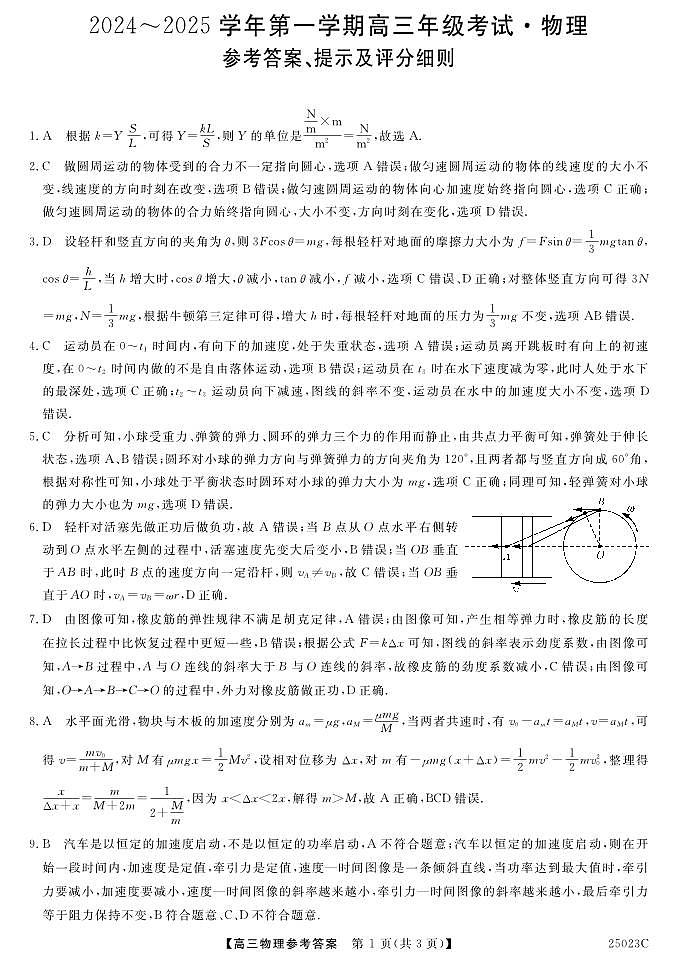 2024～2025 学年第一学期高三年级考试·物理
参考答案、提示及评分细则
1. A 根据 k=Y S/L,可得 Y=kL/S,则 Y 的单位是 (N/m×m)/m²=N/m²,故选 A.
2. C 做圆周运动的物体受到的合力不一定指向圆心,选项 A 错误;做匀速圆周运动的物体的线速度的大小不
变,线速度的方向时刻在改变,选项 B 错误;做匀速圆周运动的物体向心加速度始终指向圆心,选项 C 正确;
做匀速圆周运动的物体的合力始终指向圆心,大小不变,方向时刻在变化,选项 D 错误.
3. D 设轻杆和竖直方向的夹角为 θ,则 3Fcos θ=mg,每根轻杆对地面的摩擦力大小为 f=Fsin θ=1/3 mgtan θ,
cos θ=h/L,当 h 增大时,cos θ 增大,θ 减小,tan θ 减小,f 减小,选项 C 错误、D 正确;对整体竖直方向可得 3N
=mg,N=1/3 mg,根据牛顿第三定律可得,增大 h 时,每根轻杆对地面的压力为 1/3 mg 不变,选项 AB 错误.
4. C 运动员在 0～t₁ 时间内,有向下的加速度,处于失重状态,选项 A 错误;运动员离开跳板时有向上的初速
度,在 0～t₂ 时间内做的不是自由落体运动,选项 B 错误;运动员在 t₃ 时在水下速度减为零,此时人处于水下
的最深处,选项 C 正确;t₂～t₃ 运动员向下减速,图线的斜率不变,运动员在水中的加速度大小不变,选项 D
错误.
5. C 分析可知,小球受重力、弹簧的弹力、圆环的弹力三个力的作用而静止,由共点力平衡可知,弹簧处于伸长
状态,选项 A、B 错误;圆环对小球的弹力方向与弹簧弹力的方向夹角为 120°,且两者都与竖直方向成 60°角,
根据对称性可知,小球处于平衡状态时圆环对小球的弹力大小为 mg,选项 C 正确;同理可知,轻弹簧对小球
的弹力大小也为 mg,选项 D 错误.
6. D 轻杆对活塞先做正功后做负功,故 A 错误;当 B 点从 O 点水平右侧转
动到 O 点水平左侧的过程中,活塞速度先变大后变小,B 错误;当 OB 垂直
于 AB 时,此时 B 点的速度方向一定沿杆,则 v_A≠v_B,故 C 错误;当 OB 垂
直于 AO 时,v_A=v_B=ωr,D 正确.
B
ω
A
O
C
7. D 由图像可知,橡皮筋的弹性规律不满足胡克定律,A 错误;由图像可知,产生相等弹力时,橡皮筋的长度
在拉长过程中比恢复过程中更短一些,B 错误;根据公式 F=kΔx 可知,图线的斜率表示劲度系数,由图像可
知,A→B 过程中,A 与 O 连线的斜率大于 B 与 O 连线的斜率,故橡皮筋的劲度系数减小,C 错误;由图像可
知,O→A→B→C→O 的过程中,外力对橡皮筋做正功,D 正确.
8. A 水平面光滑,物块与木板的加速度分别为 a_m=μg,a_M=μmg/M,当两者共速时,有 v₀-a_m t=a_M t,v=a_M t,可
得 v=mv₀/(m+M),对 M 有 μmgx=1/2 Mv²,设相对位移为 Δx,对 m 有-μmg(x+Δx)=1/2 mv²-1/2 mv₀²,整理得
x/(Δx+x)=m/(M+2m)=1/(2+M/m),因为 x<Δx<2x,解得 m>M,故 A 正确,BCD 错误.
9. B 汽车是以恒定的加速度启动,不是以恒定的功率启动,A 不符合题意;汽车以恒定的加速度启动,则在开
始一段时间内,加速度是定值,牵引力是定值,速度—时间图像是一条倾斜直线,当功率达到最大值时,牵引
力要减小,加速度要减小,速度—时间图像的斜率越来越小,牵引力—时间图像的斜率越来越小,最后牵引力
等于阻力保持不变,B 符合题意、C、D 不符合题意.
【高三物理参考答案 第 1 页(共 3 页)】
25023C